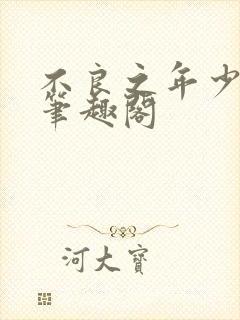 不良之年少
筆趣閣
河大寶